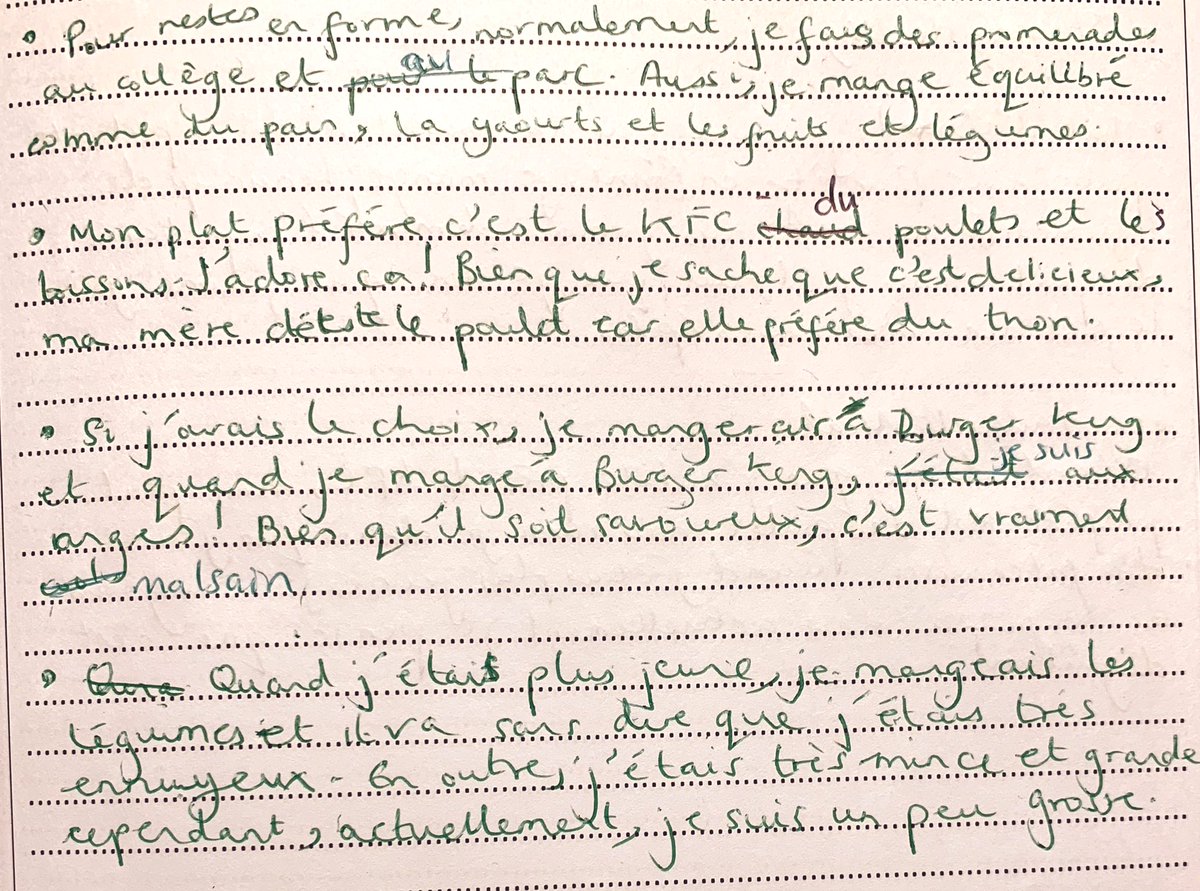 • Pour restes en forme, normalement, je fais des promenades
au collège et au parc. Aussi, je mange équilibré
comme du pain, la yaourts et les fruits et légumes.
• Mon plat préfére c'est le KFC du poulets et les
bissons. J'adore ca! Bien que je sache que c'est delicieux,
ma mère déteste le poulet car elle préfére du thon.
• Si j'avais le choix, je mangerair à Burger Keng
et quand je mange à Burger Keng, je suis aux
anges! Bien qu'il soit savoureux, c'est vraiment
malsain
• Quand j'étais plus jeune, je mangeais les
légumes et il va sans dire que j'étais très
ennuyeux. En outre, j'étais très mince et grande
cependant, actuellement, je suis un peu grosse.